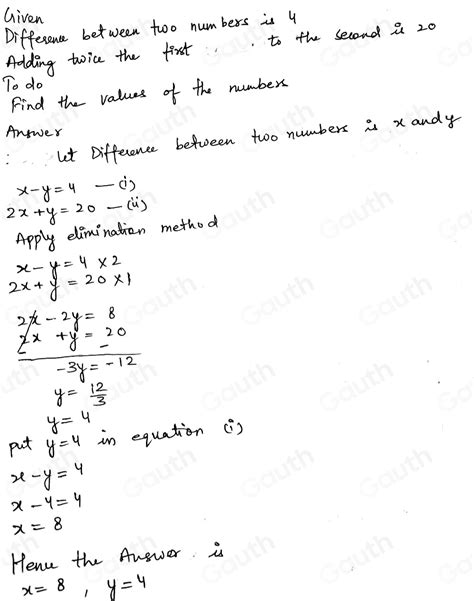 Given
Difference between two numbers is 4
Adding twice the first to the second is 20
To do
Find the values of the numbers
Answer
: let Difference between two numbers is x and y
x-y=4 —(i)
2x+y=20 —(ii)
Apply elimination method
x-y=4 ×2
2x+y=20 ×1
2x-2y=8
2x +y= 20
- -
-3y=-12
y= 12/3
y=4
put y=4 in equation (i)
x-y=4
x-4=4
x=8
Hence the Answer is
x=8, y=4
Gauth